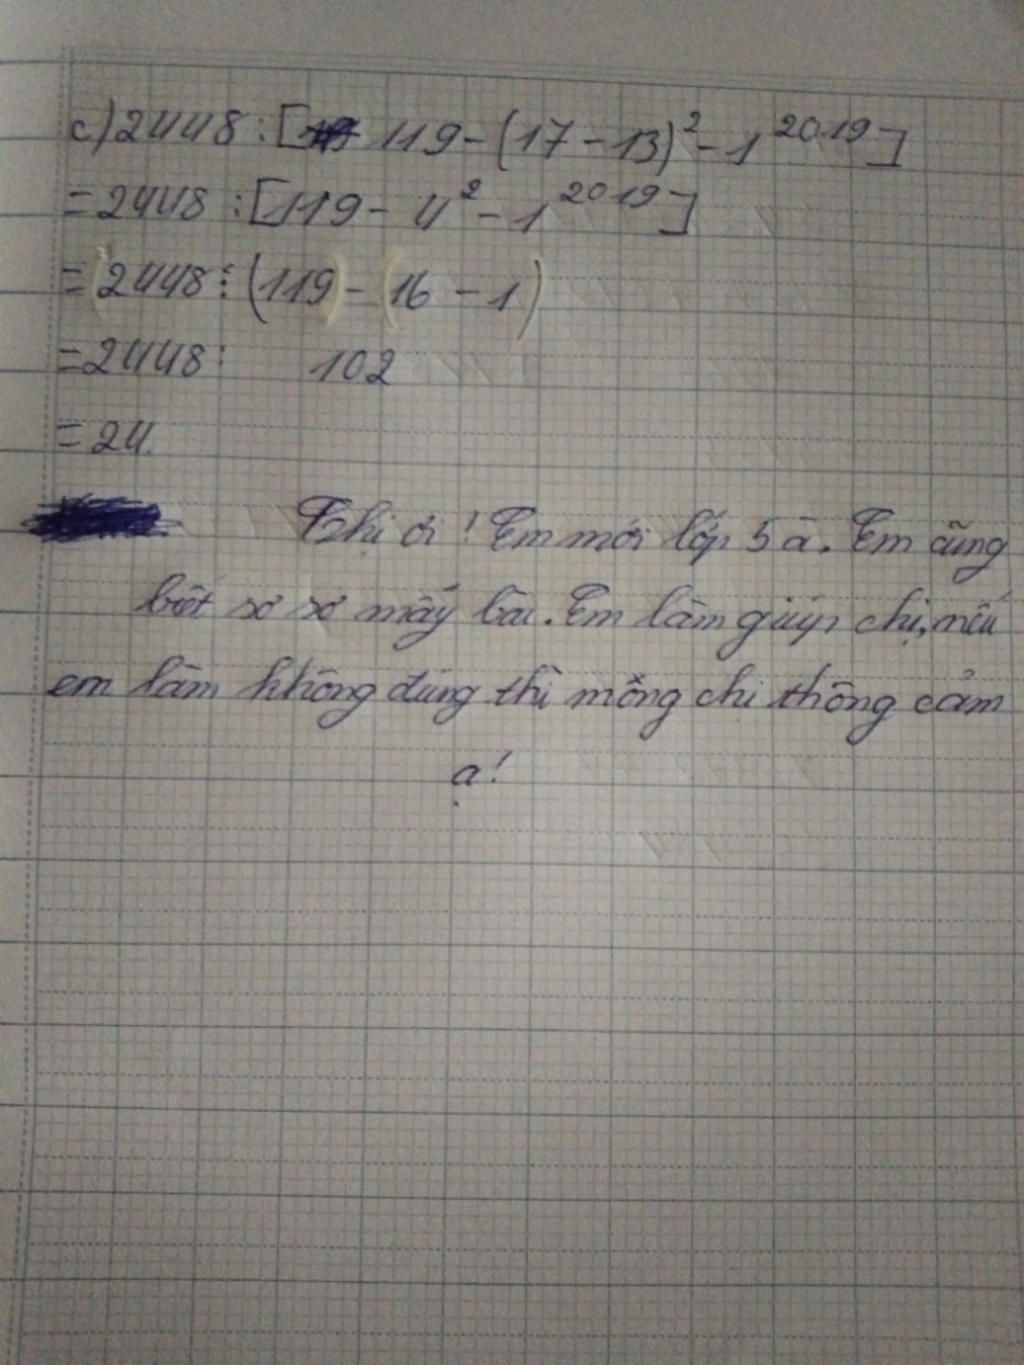 c) 2448 : [119 - (17 - 13)² - 1²⁰¹⁹]
= 2448 : [119 - 4² - 1²⁰¹⁹]
= (2448 : (119) - (16 - 1)
= 2448 : 102
= 24.
Chị ơi ! Em mới lớp 5 ạ. Em cũng
biết sơ sơ mấy bài. Em làm giúp chị, nếu
em làm không đúng thì mông chị thông cảm
ạ!